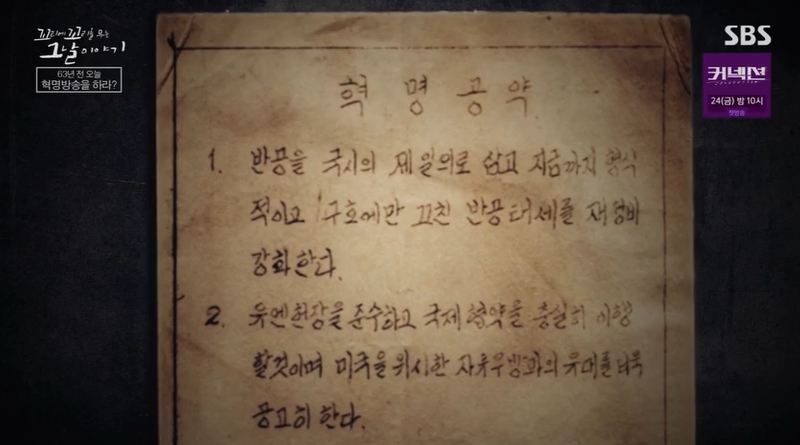 꼬리에 꼬리를 무는
그날 이야기
63년 전 오늘
혁명방송을 하라?
SBS
커넥션
24(금) 밤 10시
첫방송
혁명공약
1. 반공을 국시의 제일의로 삼고 지금까지 형식
적이고 구호에만 끄친 반공태세를 재정비
강화한다.
2. 유엔헌장을 준수하고 국제협약을 충실히 이행
할것이며 미국을 위시한 자유우방과의 유대를 더욱
공고히 한다.